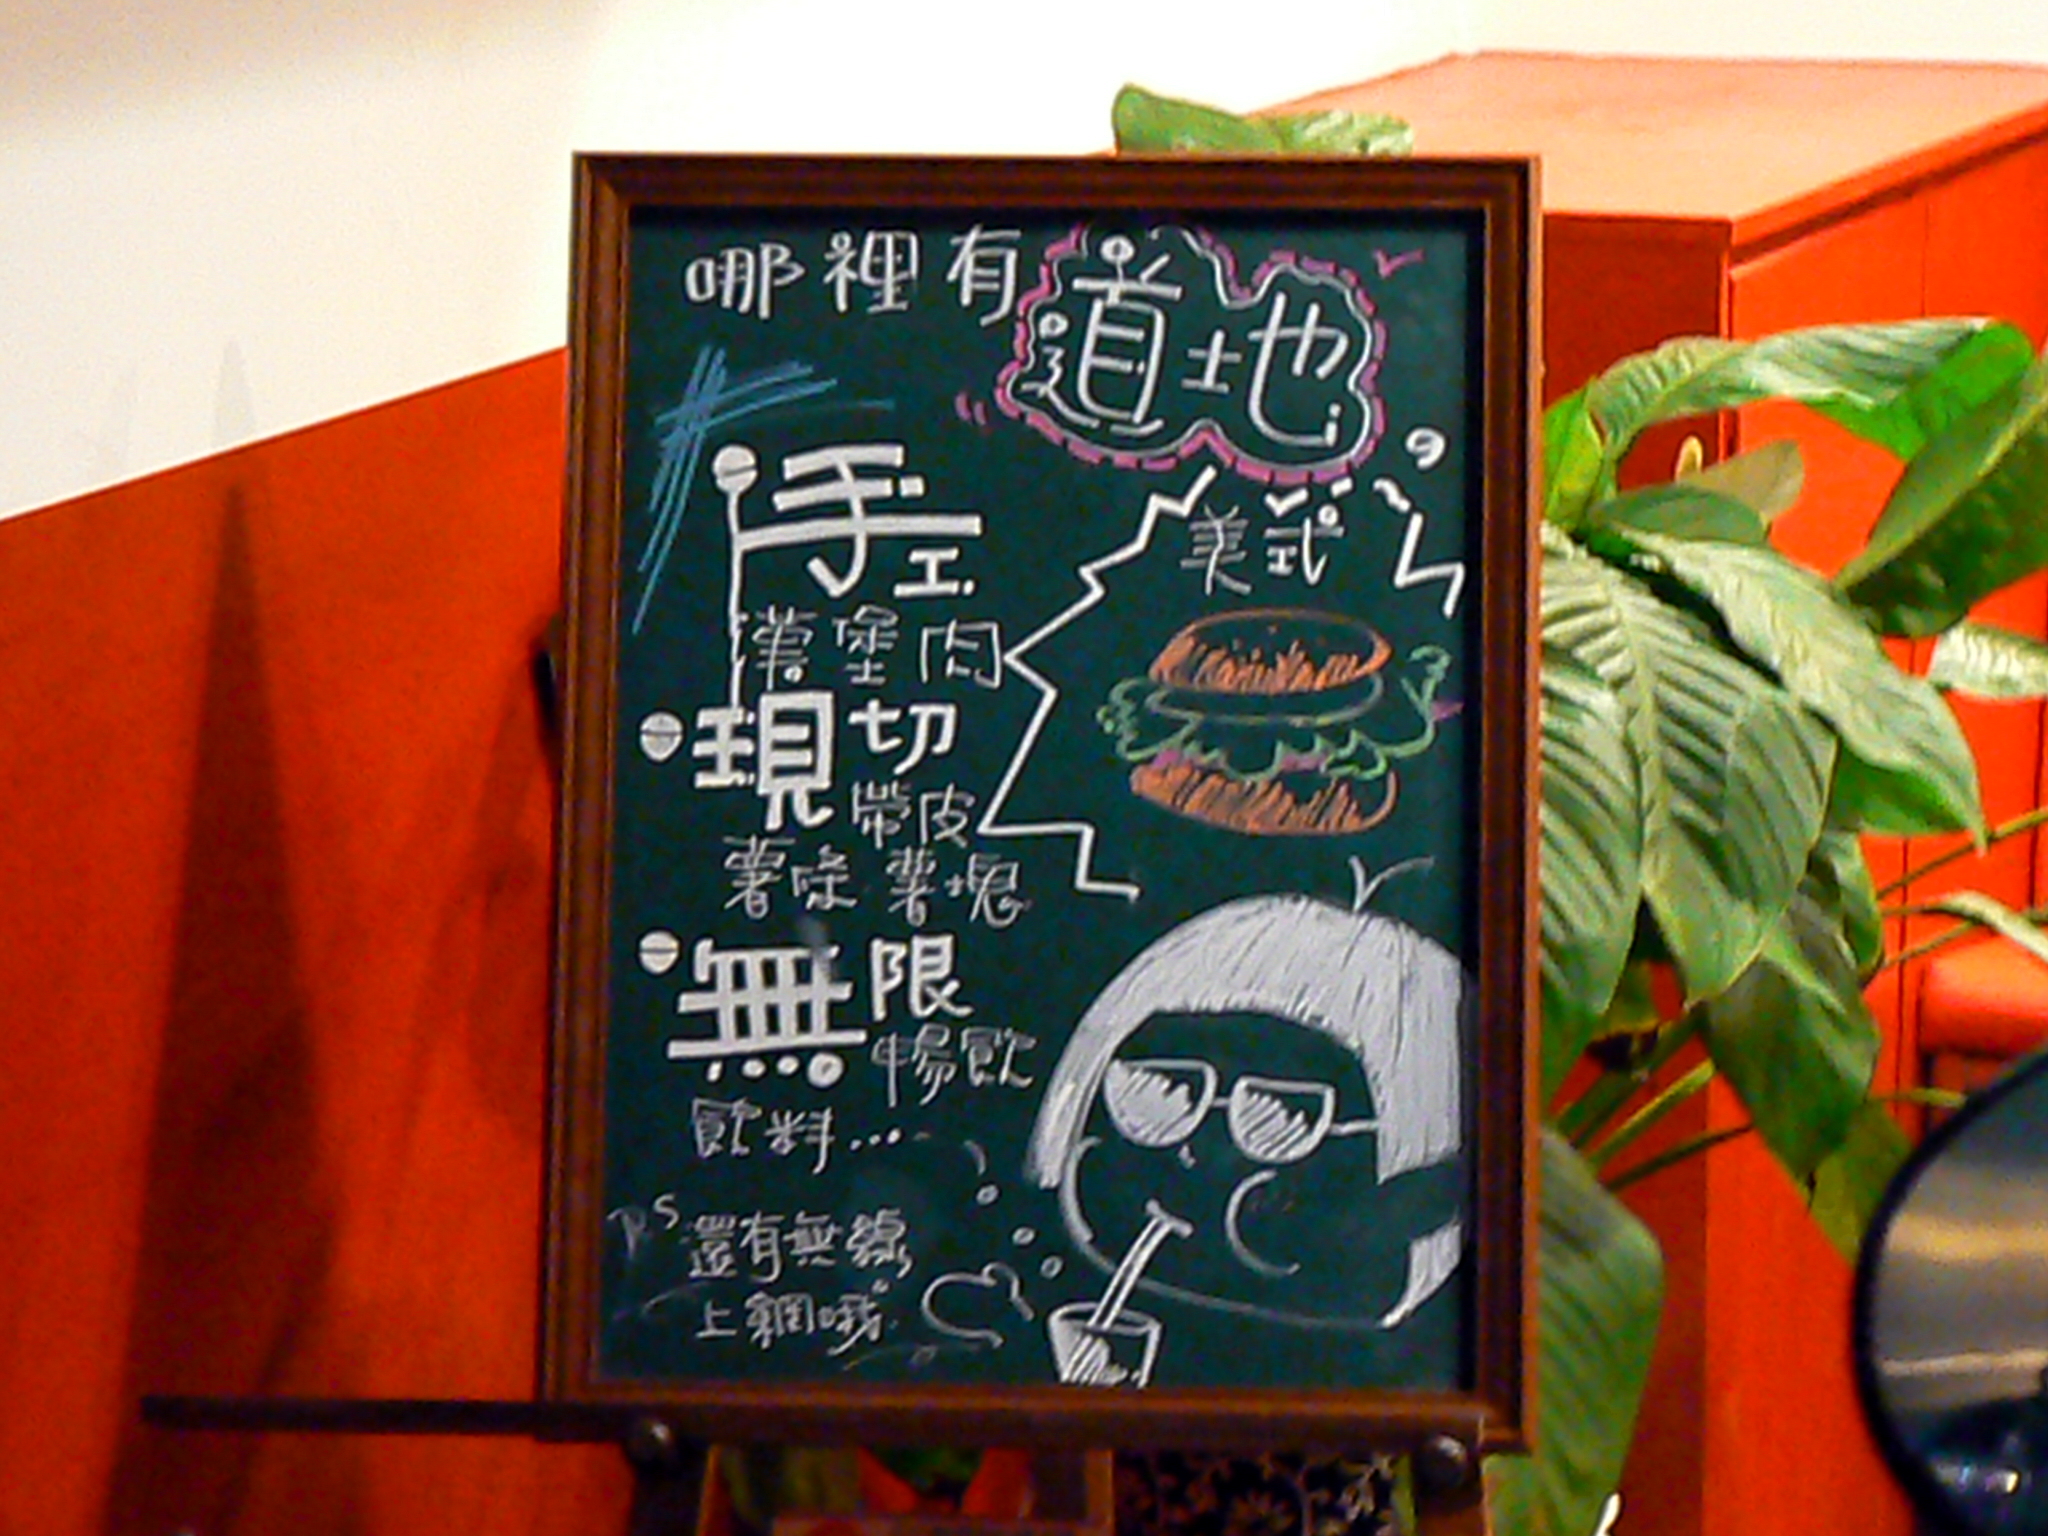 哪裡有道地
美式
手工
漢堡肉
現切
帶皮
薯條 薯塊
無限
暢飲
飲料...
PS 還有無線
上網哦